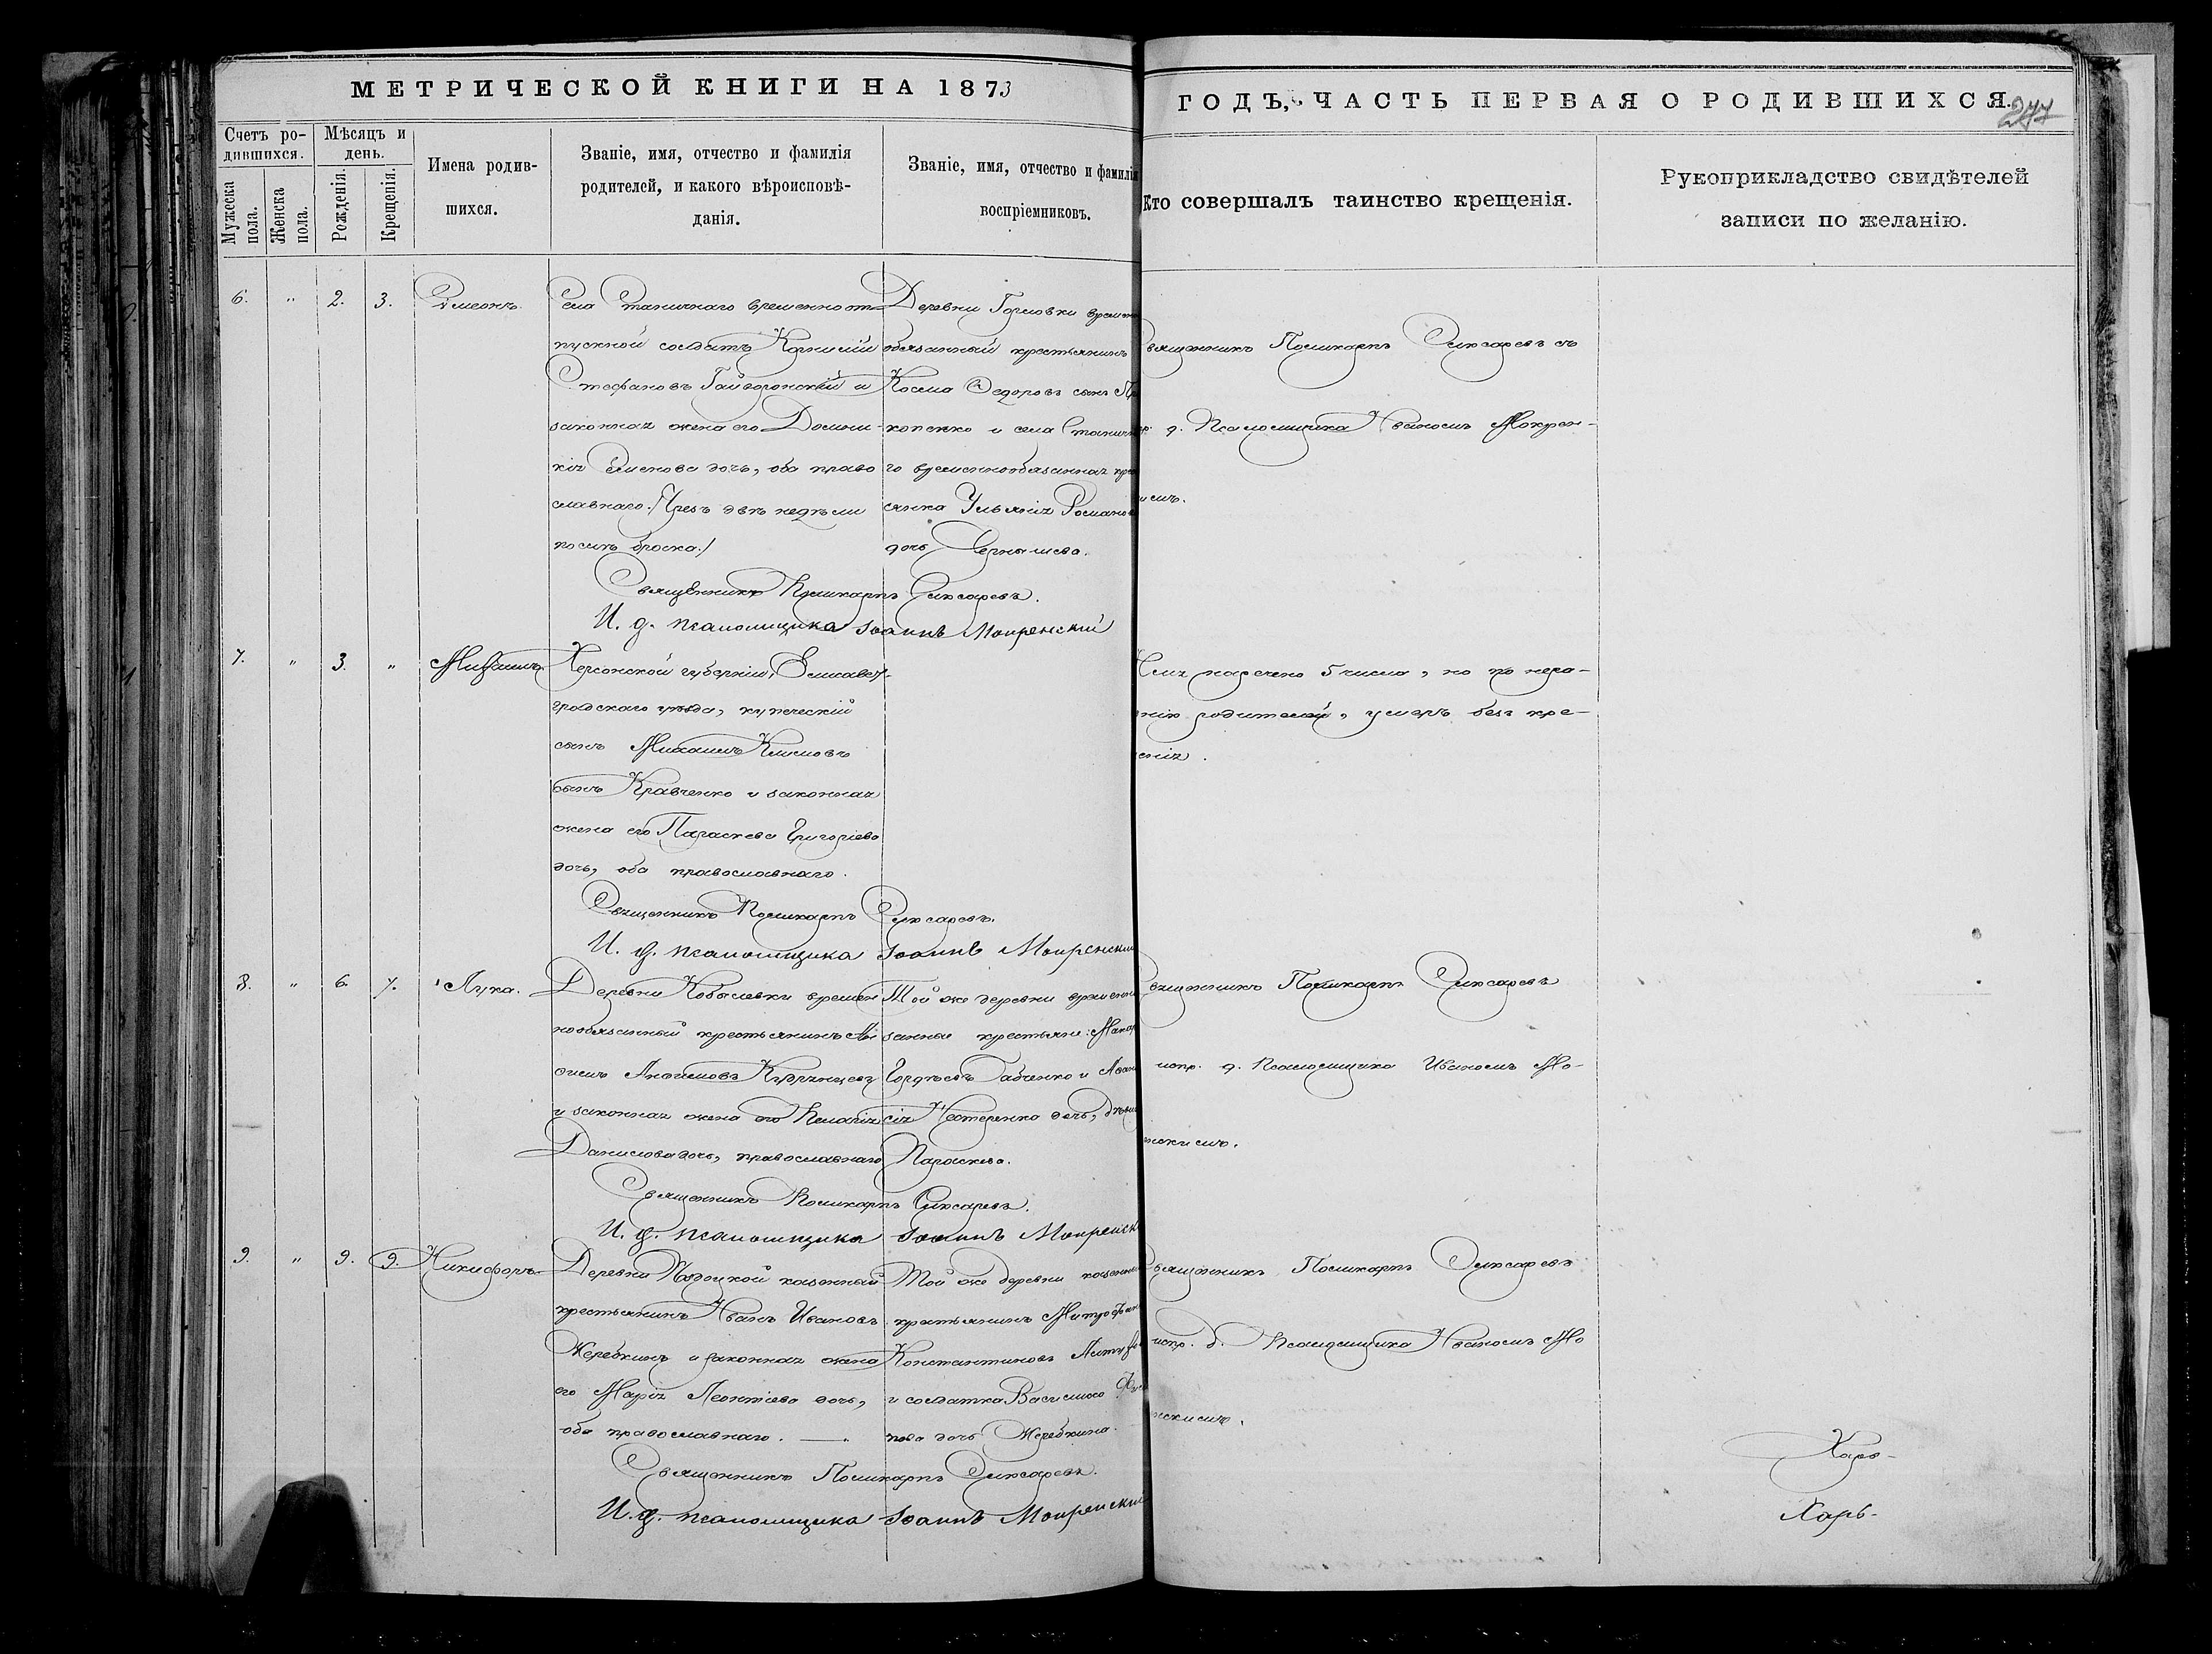 МЕТРИЧЕСКОЙ КНИГИ НА 1873
ГОДЪ, ЧАСТЬ ПЕРВАЯ О РОДИВШИХСЯ.
277
Счетъ ро-
дившихся.
Мужеска
пола.
Женска
пола.
Мѣсяцъ и
день.
Рожденія.
Крещенія.
Имена родив-
шихся.
Званіе, имя, отчество и фамилія
родителей, и какого вѣроисповѣ-
данія.
Званіе, имя, отчество и фамилія
воспріемниковъ.
Кто совершалъ таинство крещенія.
Рукоприкладство свидѣтелей
записи по желанію.
6. " 2. 3. Симеонъ.
Села Таничнаго временно от-
пускной солдатъ Корнилій
Стефановъ Гайворонскій и
законная жена его Домни-
кія Семенова дочь, оба право
славнаго. /Чрезъ двѣ недѣли
послѣ брака./
Деревни Горловки времен
обязанный крестьянинъ
Косма Ѳедоровъ сынъ Пр
копенко и села Станичн
го временнообязанная кре
янка Ульянія Романов
дочь Чернышева.
вященникъ Поликарпъ Слюсаревъ съ
д. Псаломщика Иваномъ Мокрен-
имъ.
Священникъ Поликарпъ Слюсаревъ.
И. д. псаломщика Іоаннъ Мокренскій
7. " 3. " Михаилъ
Херсонской губерніи, Елисавет-
градскаго уѣзда, купеческій
сынъ Михаилъ Климовъ
сынъ Кравченко и законная
жена его Параскева Григоріева
дочь, оба православнаго.
Имя наречено 5 числа, но по нера-
нію родителей, умеръ безъ кре-
енія.
Священникъ Поликарпъ Слюсаревъ.
И. д. псаломщика Іоаннъ Мокренскій
8. " 6. 7. Лука.
Деревни Кобылевки времен
нообязанный крестьянинъ
Анѳимовъ
и законная жена его Пелагія
Данилова дочь, православнаго
Той же деревни временно
занные крестьяне: Макар
Гордѣевъ Бабченко и Аѳан
сія Нестеренко дочь, дѣви
Параскева.
вященникъ Поликарпъ Слюсаревъ
испр. д. Псаломщика Иваномъ Мо-
нскимъ.
Священникъ Поликарпъ Слюсаревъ.
И. д. псаломщика Іоаннъ Мокренск
9. " 9. 9. Никифоръ
Деревни казенный
крестьянинъ Иванъ Ивановъ
Жеребкинъ и законная жена
его Марія Леонтіева дочь,
оба православнаго. —
Той же деревни казенны
крестьянинъ Митрофан
Константиновъ
и солдатка Василиса
пова дочь Жеребкина.
вященникъ Поликарпъ Слюсаревъ
испр. д. Псаломщика Иваномъ Мо
нскимъ.
Священникъ Поликарпъ Слюсаревъ.
И. д. псаломщика Іоаннъ Мокренскій
Харь-
Харь-